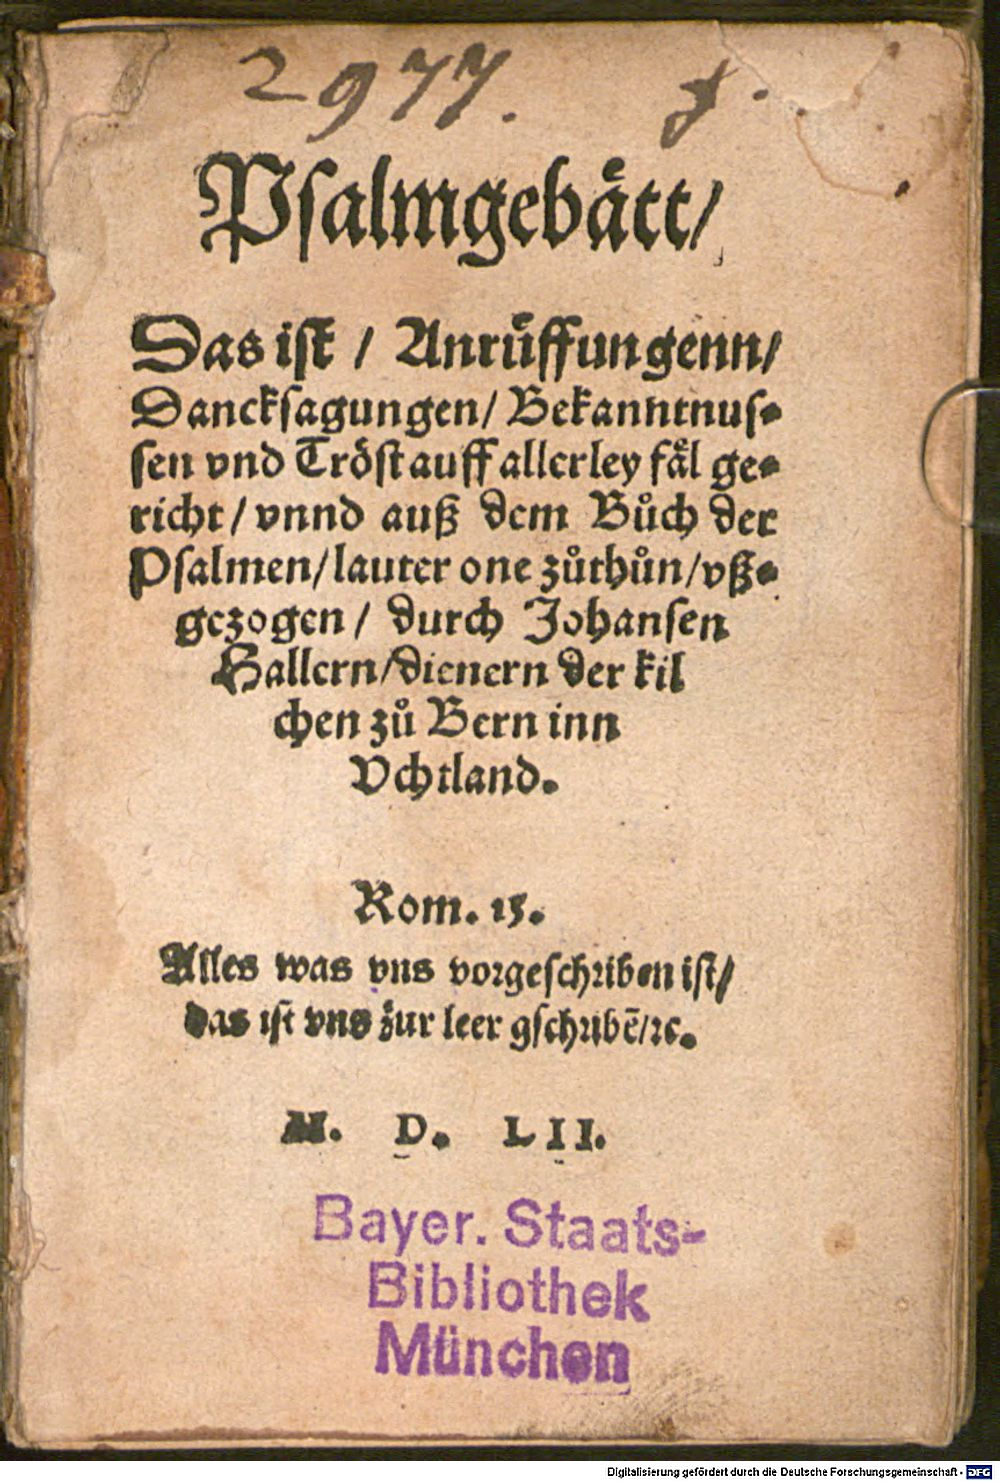 2977. f.
Psalmgebätt/
Das ist / Anrůffungenn/
Dancksagungen/ Bekanntnus-
sen vnd Tröst auff allerley fäl ge-
richt/ vnnd auß dem Bůch der
Psalmen/ lauter one zůthůn/ vß-
gezogen/ durch Johansen
Hallern/ dienern der kil
chen zů Bern inn
Vchtland.
Rom. 15.
Alles was vns vorgeschriben ist/
das ist vns zur leer gschribē/ ꝛc.
M. D. LII.
Bayer. Staats-
Bibliothek
München
Digitalisierung gefördert durch die Deutsche Forschungsgemeinschaft - DFG